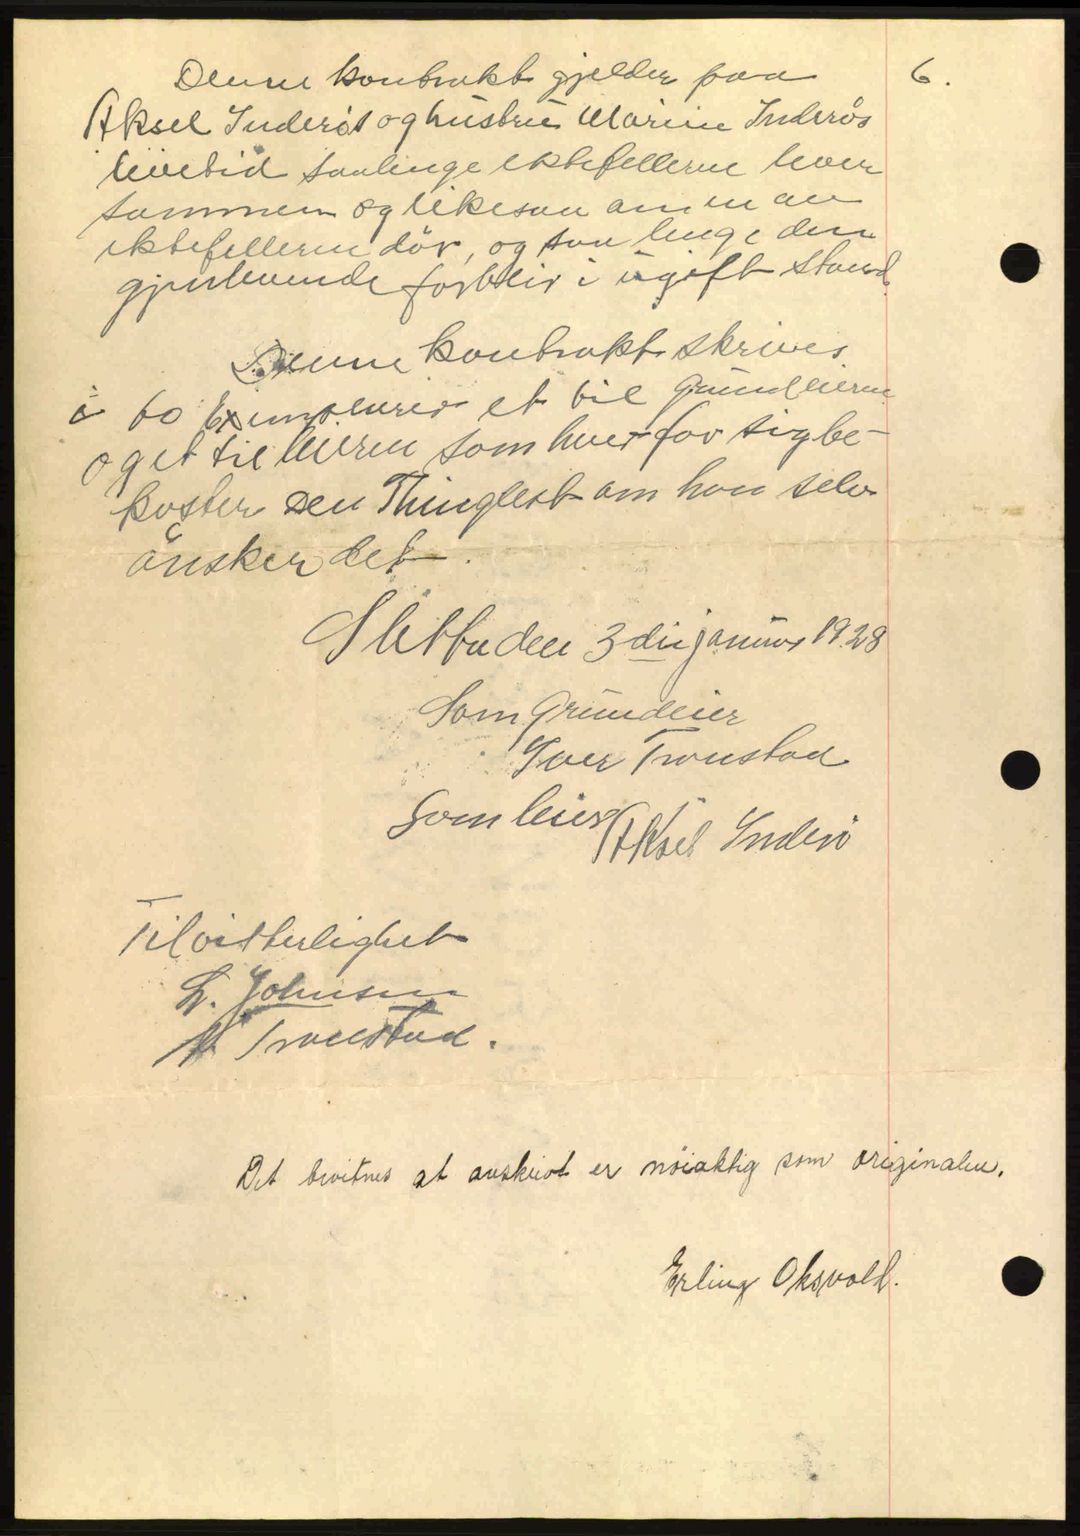 6.
Denne kontrakt gjelder paa
Aksel Inderös og hustru Marin Inderös
livetid saalenge ektefellerne lever
sammen og likesaa om en av
ektefellerne dör, og saa lenge den
gjenlevende forblir i ugift stand
Denne kontrakt skrives
i to Exemplarer et til Grundeieren
og et til leieren som hver for sig be-
koster den Thinglest om han selv
önsker det.
Sletta den 3die januar 1928
Som Grundeier
Iver Tronstad
Som leier Aksel Inderö
Til vitterlighet
L. Johnsen
Tronstad.
Det bevitnes at avskrivt er nöiaktig som originalen.
Erling Oksvold.